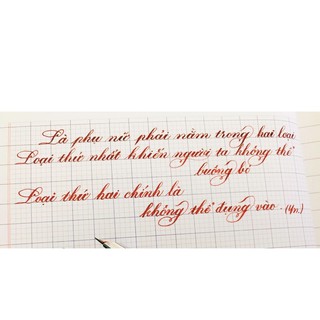 Là phụ nữ phải nằm trong hai loại
Loại thứ nhất khiến người ta không thể
buông bỏ
Loại thứ hai chính là
không thể đụng vào. (4n.)